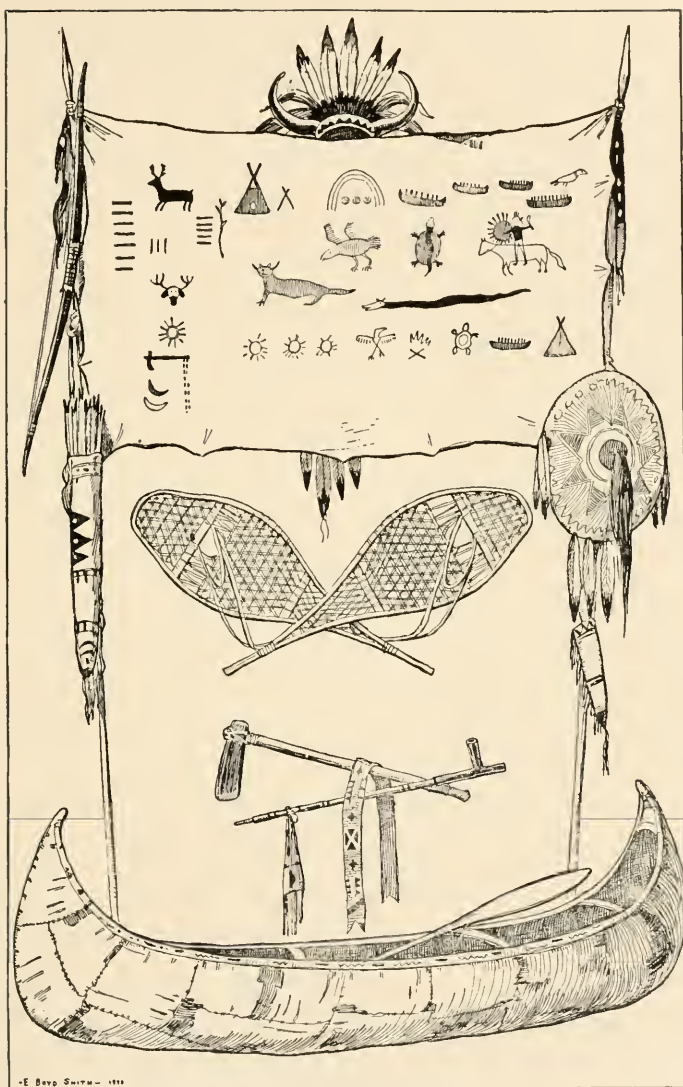 -E BOYD SMITH-